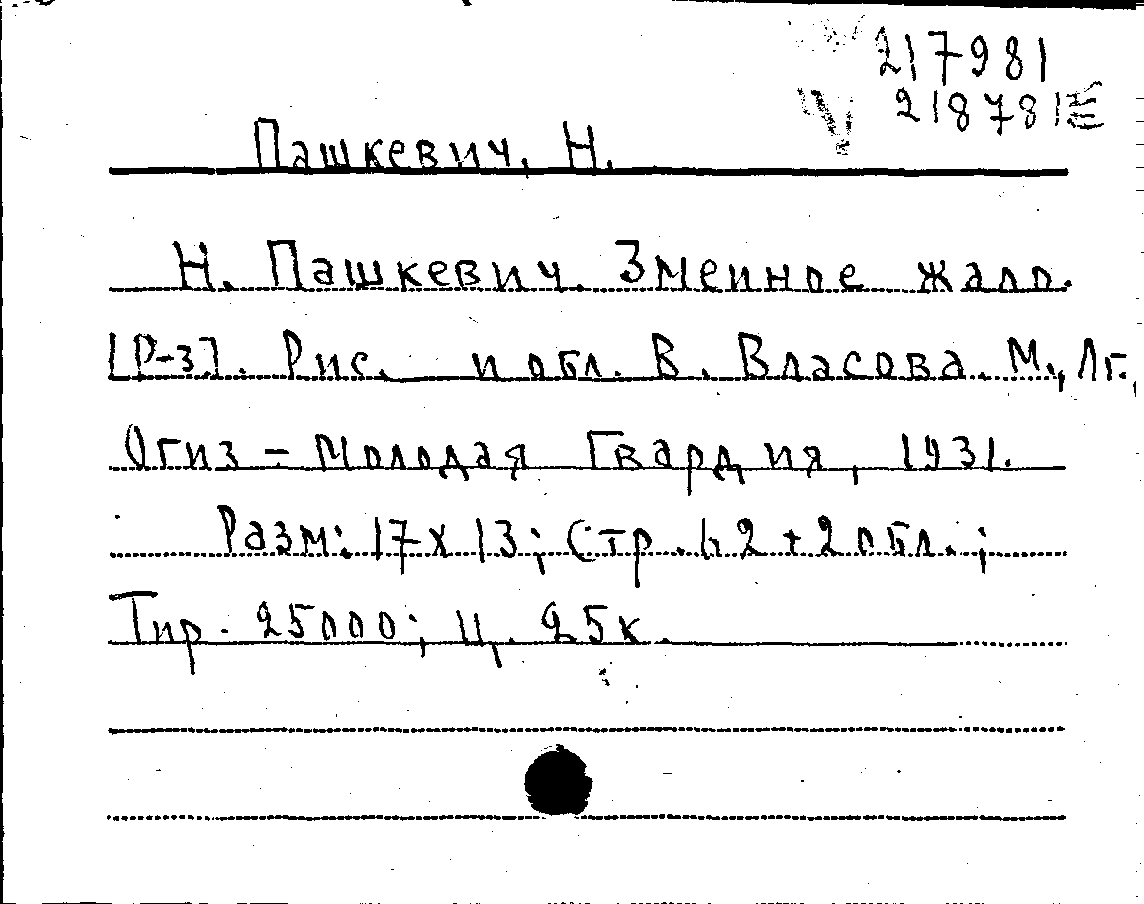 217981
218781
Пашкевич, Н.
Н. Пашкевич. Змеиное жало.
[Р-з]. Рис. и обл. В. Власова. М., Лг.,
Огиз - Молодая Гвардия, 1931.
Разм: 17 х 13; Стр. 42 + 2 обл.;
Тир. 25000; Ц. 25к.